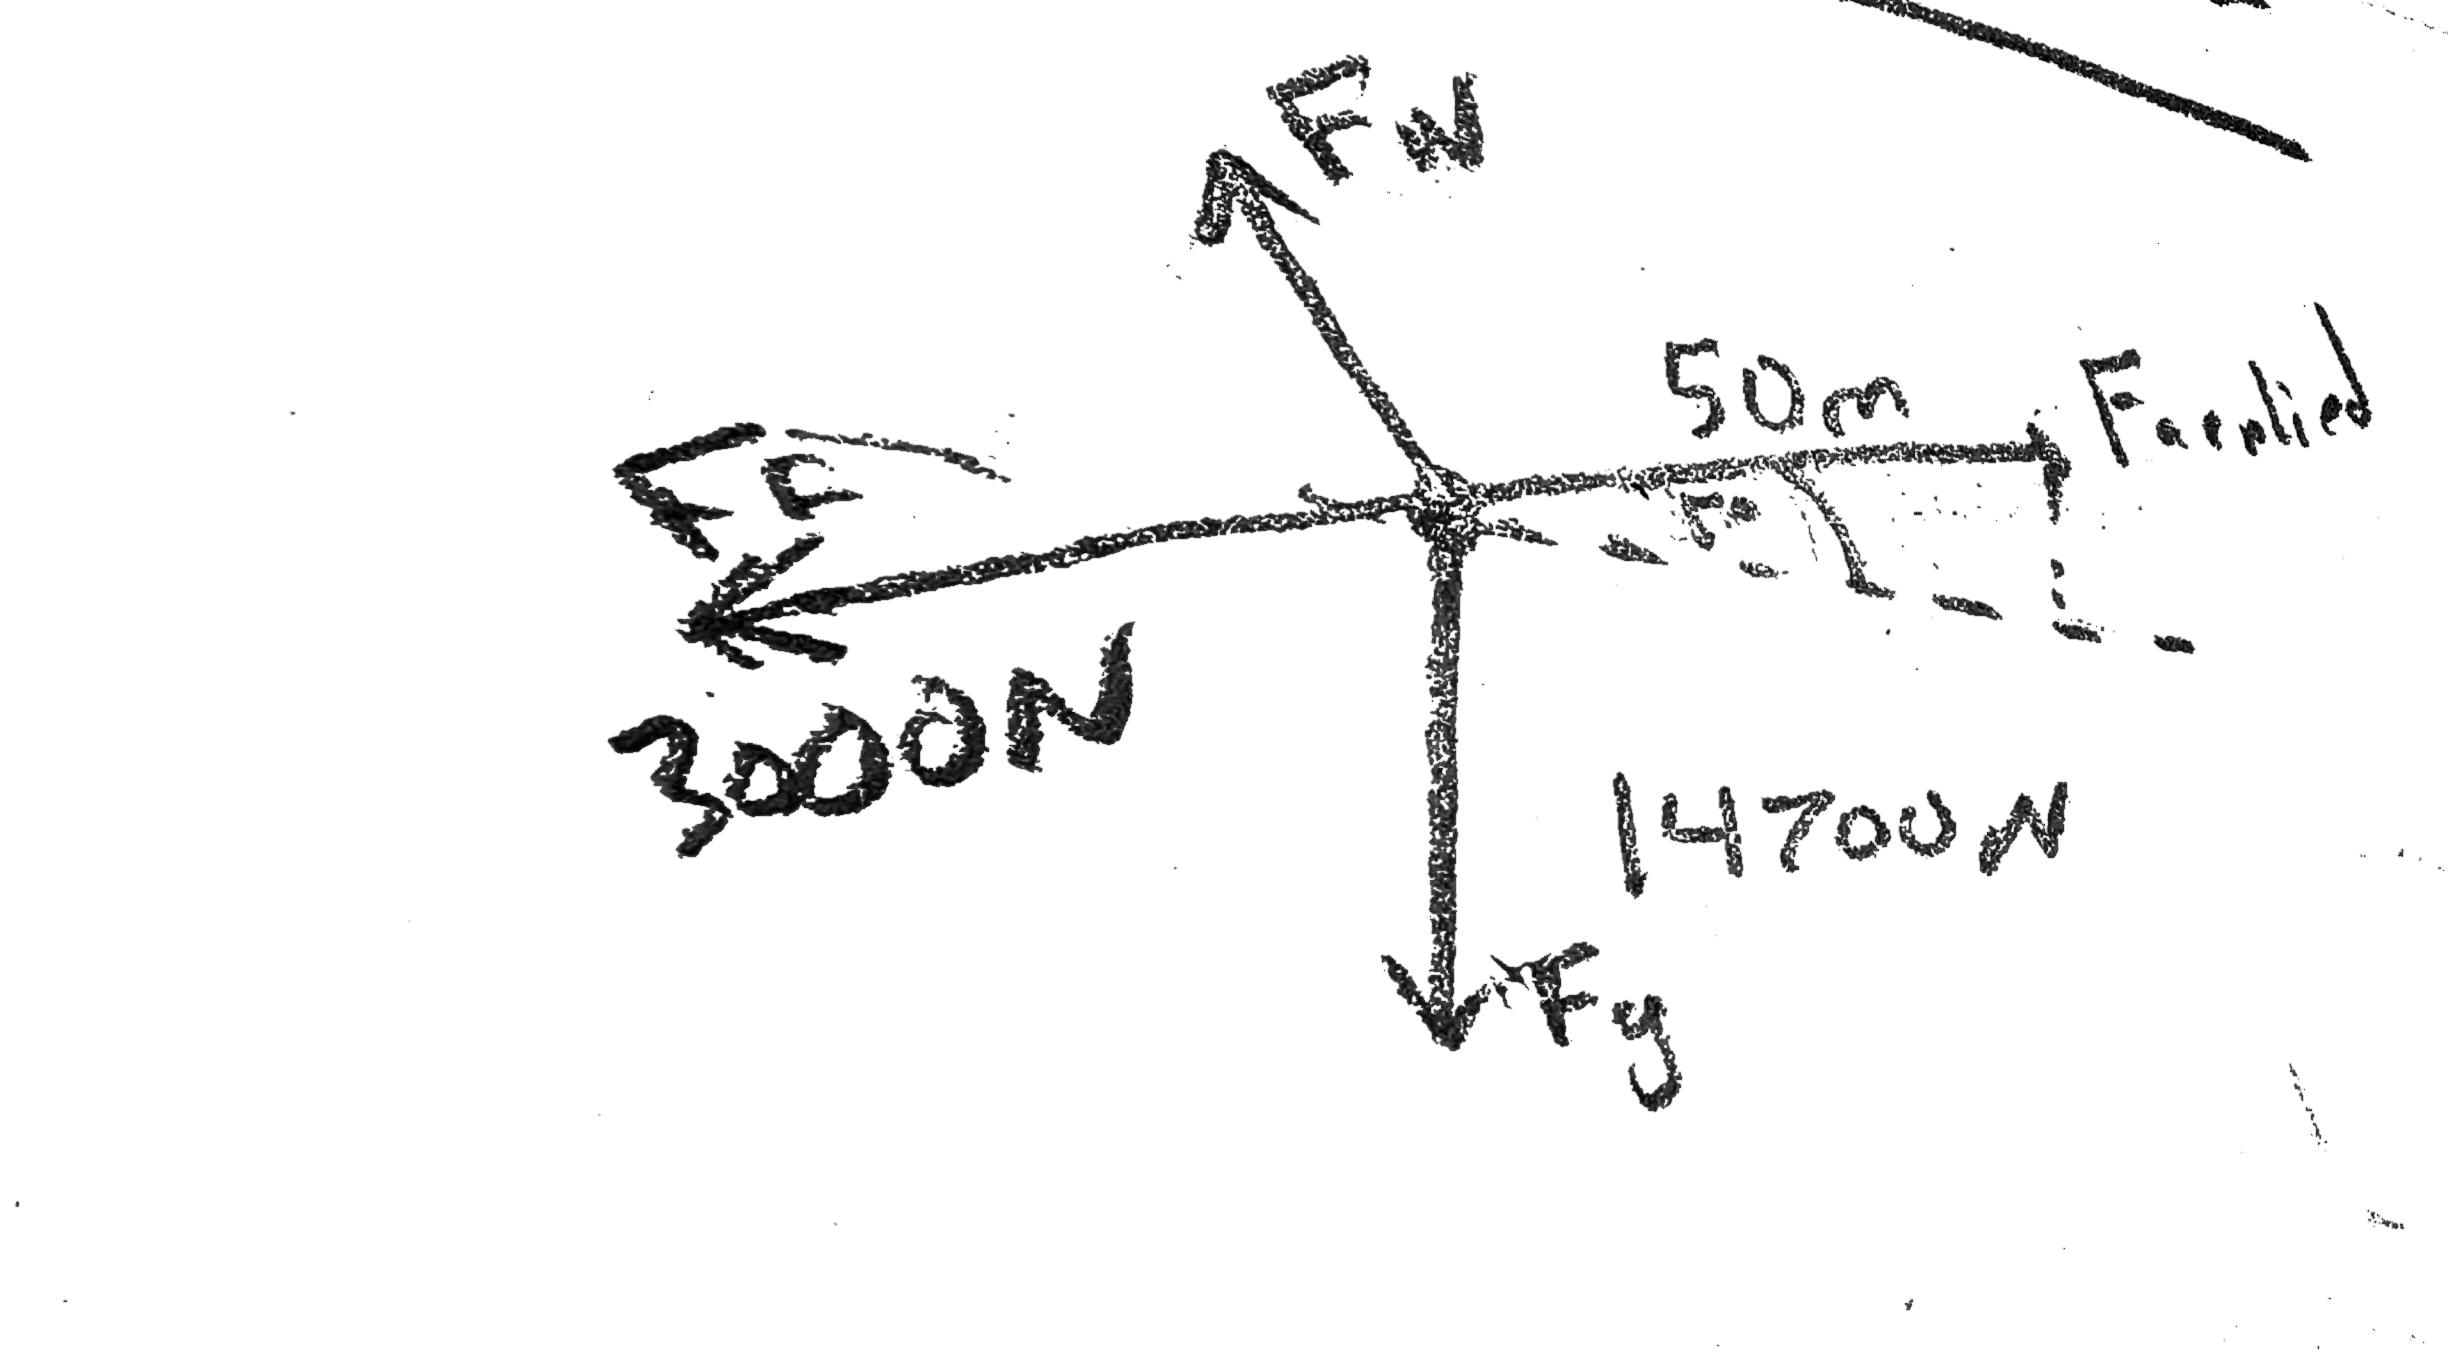 FN
50m
Fapplied
FF
3000N
14700N
Fg